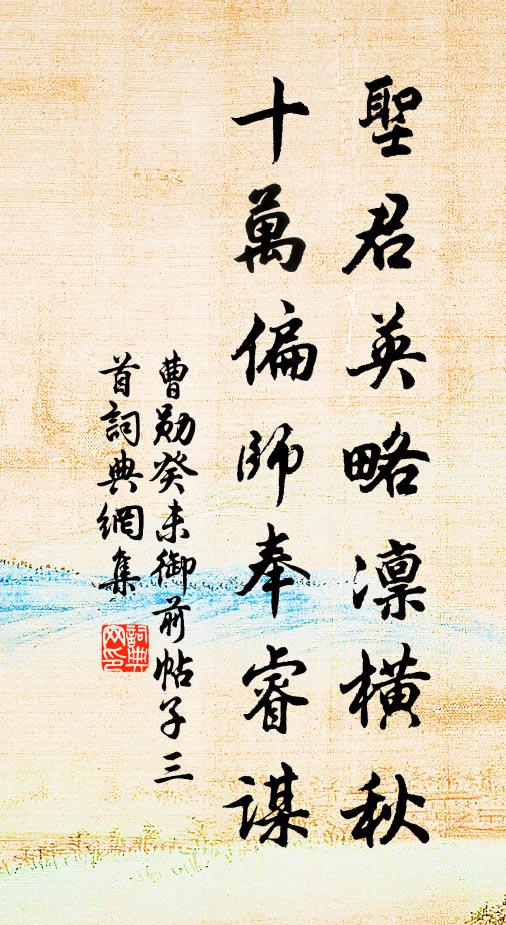 聖君英略凜橫秋
十萬偏師奉睿謀
曹勛癸未御前帖子三
首詞典網集
詞典
网印